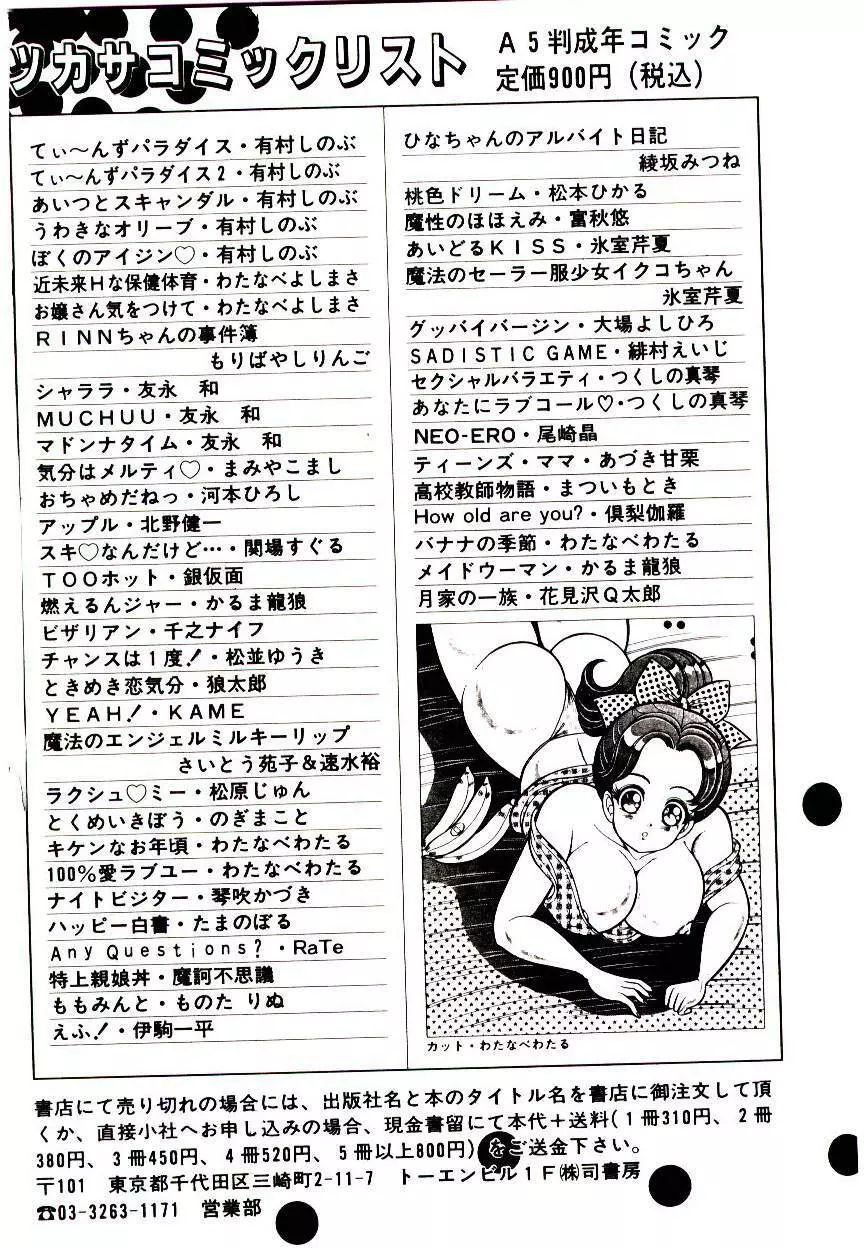 ツカサコミックリスト
A5判成年コミック
定価900円(税込)
てぃ〜んずパラダイス・有村しのぶ
てぃ〜んずパラダイス2・有村しのぶ
あいつとスキャンダル・有村しのぶ
うわきなオリーブ・有村しのぶ
ぼくのアイジン♡・有村しのぶ
近未来Hな保健体育・わたなべよしまさ
お嬢さん気をつけて・わたなべよしまさ
RINNちゃんの事件簿
もりばやしりんご
シャララ・友永 和
MUCHUU・友永 和
マドンナタイム・友永 和
気分はメルティ♡・まみやこまし
おちゃめだねっ・河本ひろし
アップル・北野健一
スキ♡なんだけど…・関場すぐる
TOOホット・銀仮面
燃えるんジャー・かるま龍狼
ビザリアン・千之ナイフ
チャンスは1度!・松並ゆうき
ときめき恋気分・狼太郎
YEAH!・KAME
魔法のエンジェルミルキーリップ
さいとう苑子&速水裕
ラクシュ♡ミー・松原じゅん
とくめいきぼう・のぎまこと
キケンなお年頃・わたなべわたる
100%愛ラブユー・わたなべわたる
ナイトビジター・琴吹かづき
ハッピー白書・たまのぼる
Any Questions?・RaTe
特上親娘丼・魔訶不思議
ももみんと・ものた りぬ
えふ!・伊駒一平
ひなちゃんのアルバイト日記
綾坂みつね
桃色ドリーム・松本ひかる
魔性のほほえみ・富秋悠
あいどるKISS・氷室芹夏
魔法のセーラー服少女イクコちゃん
氷室芹夏
グッバイバージン・大場よしひろ
SADISTIC GAME・緋村えいじ
セクシャルバラエティ・つくしの真琴
あなたにラブコール♡・つくしの真琴
NEO-ERO・尾崎晶
ティーンズ・ママ・あづき甘栗
高校教師物語・まついもとき
How old are you?・倶梨伽羅
バナナの季節・わたなべわたる
メイドウーマン・かるま龍狼
月家の一族・花見沢Q太郎
カット・わたなべわたる
書店にて売り切れの場合には、出版社名と本のタイトル名を書店に御注文して頂
くか、直接小社へお申し込みの場合、現金書留にて本代+送料(1冊310円、2冊
380円、3冊450円、4冊520円、5冊以上800円)をご送金下さい。
〒101 東京都千代田区三崎町2-11-7 トーエンビル1F㈱司書房
☎03-3263-1171 営業部